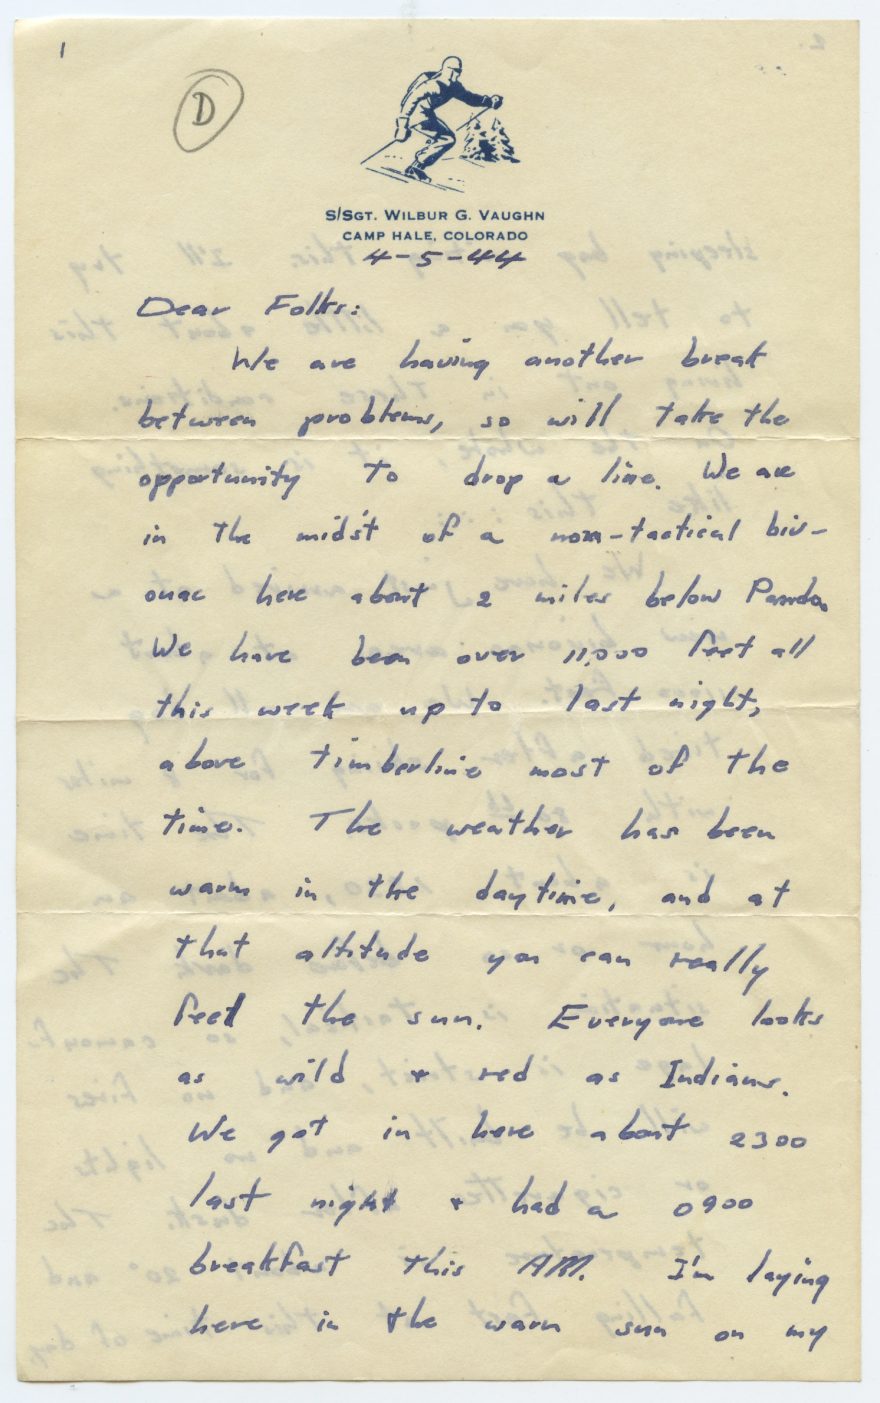 1
D
S/SGT. WILBUR G. VAUGHN
CAMP HALE, COLORADO
4-5-44
Dear Folks:
We are having another break
between problems, so will take the
opportunity to drop a line. We are
in the midst of a non-tactical biv-
ouac here about 2 miles below Pando.
We have been over 11,000 feet all
this week up to last night,
above timberline most of the
time. The weather has been
warm in the daytime, and at
that altitude you can really
feel the sun. Everyone looks
as wild + red as Indians.
We got in here about 2300
last night + had a 0900
breakfast this AM. I'm laying
here in the warm sun on my